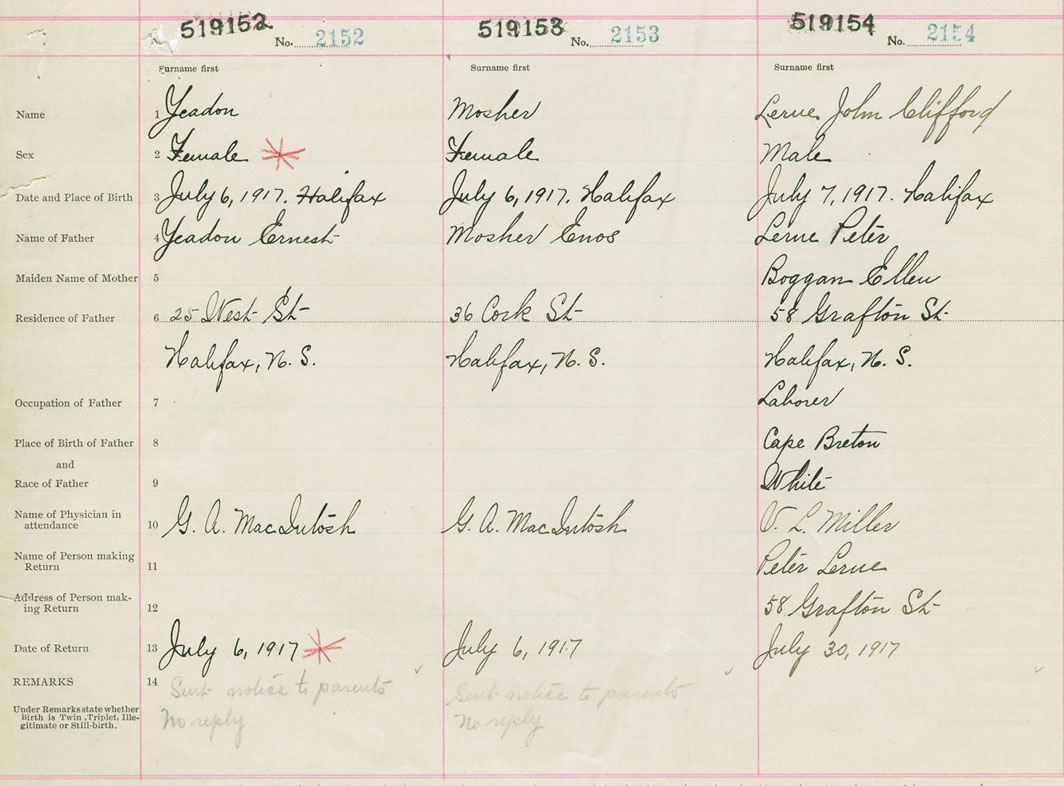 519152 519153 519154
No. 2152 No. 2153 No. 2154
Surname first Surname first Surname first
Name 1 Yeadon Mosher Lerue John Clifford
Sex 2 Female Female Male
Date and Place of Birth 3 July 6, 1917. Halifax July 6, 1917. Halifax July 7, 1917. Halifax
Name of Father 4 Yeadon Ernest Mosher Enos Lerue Peter
Maiden Name of Mother 5 Boggan Ellen
Residence of Father 6 25 West St 36 Cork St 58 Grafton St.
Halifax, N. S. Halifax, N. S. Halifax, N. S.
Occupation of Father 7 Laborer
Place of Birth of Father 8 Cape Breton
and
Race of Father 9 White
Name of Physician in
attendance 10 G. A. MacIntosh G. A. MacIntosh L. Miller
Name of Person making
Return 11 Peter Lerue
Address of Person mak-
ing Return 12 58 Grafton St
Date of Return 13 July 6, 1917 July 6, 1917 July 30, 1917
REMARKS 14 Sent notice to parents Sent notice to parents
No reply No reply
Under Remarks state whether
Birth is Twin, Triplet, Ille-
gitimate or Still-birth.